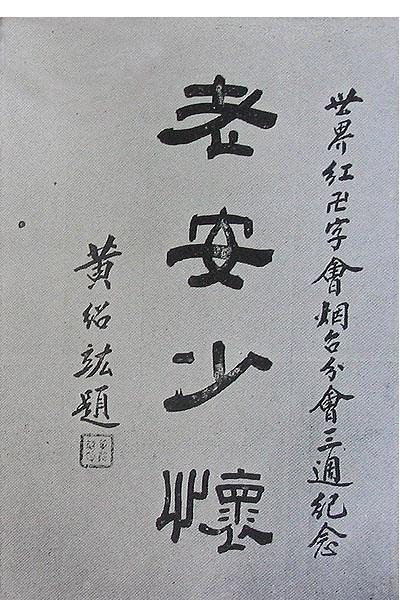 世界红卍字會烟台分會三週紀念
老安少懷
黃紹竑題